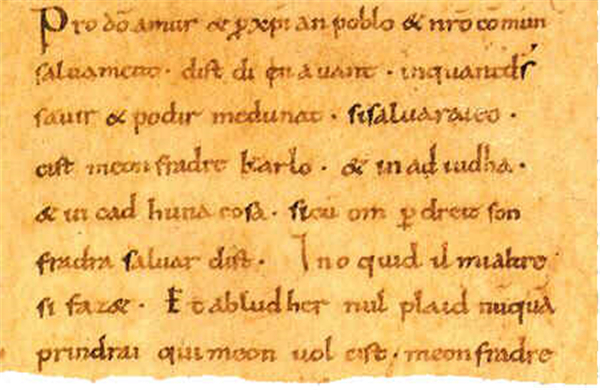 Pro dō amur & ꝑ xp̄ian poblo & nr̄o cōmun
saluament · dist di en auant · inquantdˢ
sauir & podir medunat · sisaluaraieo ·
cist meon fradre karlo · & in ad iudha ·
& in cad huna cosa · sicū om ꝑ dreit son
fradra saluar dist · Ino quid il mialtre
si faz& · Et abludher nul plaid nūquā
prindrai quimeon uol cist · meonfradre